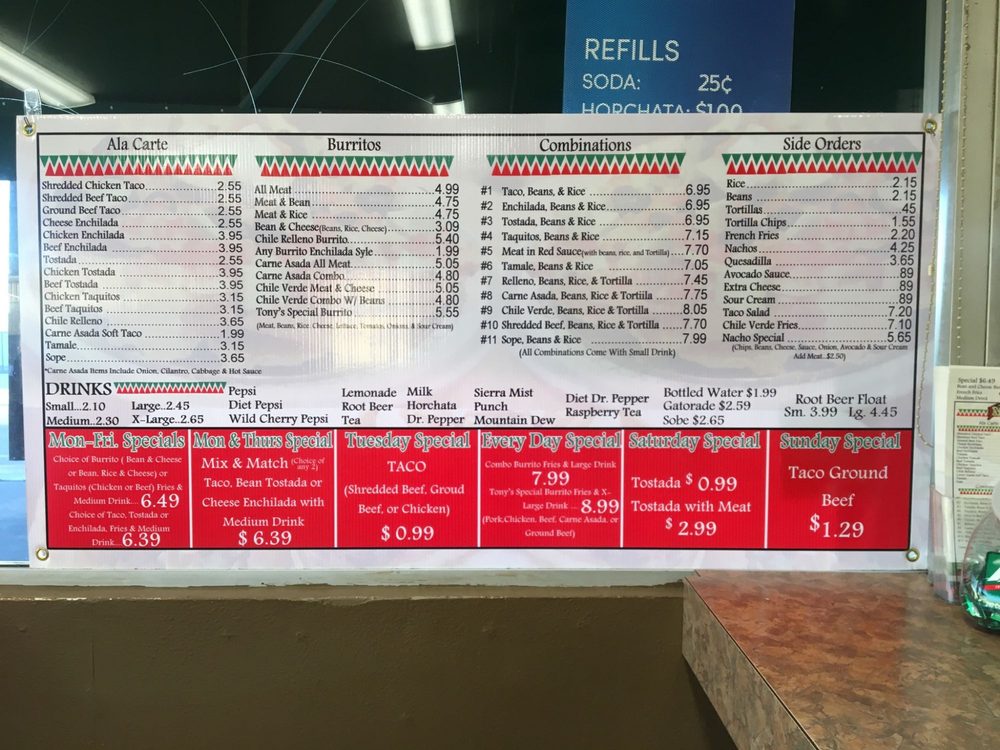 REFILLS
SODA: 25¢
HORCHATA: $1.00
Ala Carte
Shredded Chicken Taco 2.55
Shredded Beef Taco 2.55
Ground Beef Taco 2.55
Cheese Enchilada 2.55
Chicken Enchilada 3.95
Beef Enchilada 3.95
Tostada 2.55
Chicken Tostada 3.95
Beef Tostada 3.95
Chicken Taquitos 3.15
Beef Taquitos 3.15
Chile Relleno 3.65
Carne Asada Soft Taco 1.99
Tamale 3.15
Sope 3.65
*Carne Asada Items Include Onion, Cilantro, Cabbage & Hot Sauce
Burritos
All Meat 4.99
Meat & Bean 4.75
Meat & Rice 4.75
Bean & Cheese(Beans, Rice, Cheese) 3.09
Chile Relleno Burrito 5.40
Any Burrito Enchilada Syle 1.99
Carne Asada All Meat 5.05
Carne Asada Combo 4.80
Chile Verde Meat & Cheese 5.05
Chile Verde Combo W/ Beans 4.80
Tony's Special Burrito 5.55
(Meat, Beans, Rice, Cheese, Lettuce, Tomatos, Onions, & Sour Cream)
Combinations
#1 Taco, Beans, & Rice 6.95
#2 Enchilada, Beans & Rice 6.95
#3 Tostada, Beans & Rice 6.95
#4 Taquitos, Beans & Rice 7.15
#5 Meat in Red Sauce(with beans, rice, and Tortilla) 7.70
#6 Tamale, Beans & Rice 7.05
#7 Relleno, Beans, Rice, & Tortilla 7.45
#8 Carne Asada, Beans, Rice & Tortiila 7.75
#9 Chile Verde, Beans, Rice & Tortilla 8.05
#10 Shredded Beef, Beans, Rice & Tortilla 7.70
#11 Sope, Beans & Rice 7.99
(All Combinations Come With Small Drink)
Side Orders
Rice 2.15
Beans 2.15
Tortillas .45
Tortilla Chips 1.55
French Fries 2.20
Nachos 4.25
Quesadilla 3.65
Avocado Sauce .89
Extra Cheese .89
Sour Cream .89
Taco Salad 7.20
Chile Verde Fries 7.10
Nacho Special 5.65
(Chips, Beans, Cheese, Sauce, Onion, Avocado & Sour Cream
Add Meat..$2.50)
DRINKS
Small...2.10 Large..2.45
Medium..2.30 X-Large..2.65
Pepsi
Diet Pepsi
Wild Cherry Pepsi
Lemonade
Root Beer
Tea
Milk
Horchata
Dr. Pepper
Sierra Mist
Punch
Mountain Dew
Diet Dr. Pepper
Raspberry Tea
Bottled Water $1.99
Gatorade $2.59
Sobe $2.65
Root Beer Float
Sm. 3.99 Lg. 4.45
Mon-Fri. Specials
Choice of Burrito ( Bean & Cheese
or Bean, Rice & Cheese) or
Taquitos (Chicken or Beef) Fries &
Medium Drink... 6.49
Choice of Taco, Tostada or
Enchilada, Fries & Medium
Drink.. 6.39
Mon & Thurs Special
Mix & Match (Choice of any 2)
Taco, Bean Tostada or
Cheese Enchilada with
Medium Drink
$ 6.39
Tuesday Special
TACO
(Shredded Beef, Groud
Beef, or Chicken)
$ 0.99
Every Day Special
Combo Burrito Fries & Large Drink
7.99
Tony's Special Burrito Fries & X-
Large Drink ... 8.99
(Pork,Chicken, Beef, Carne Asada, or
Ground Beef)
Saturday Special
Tostada $ 0.99
Tostada with Meat
$ 2.99
Sunday Special
Taco Ground
Beef
$1.29
Special $6.49